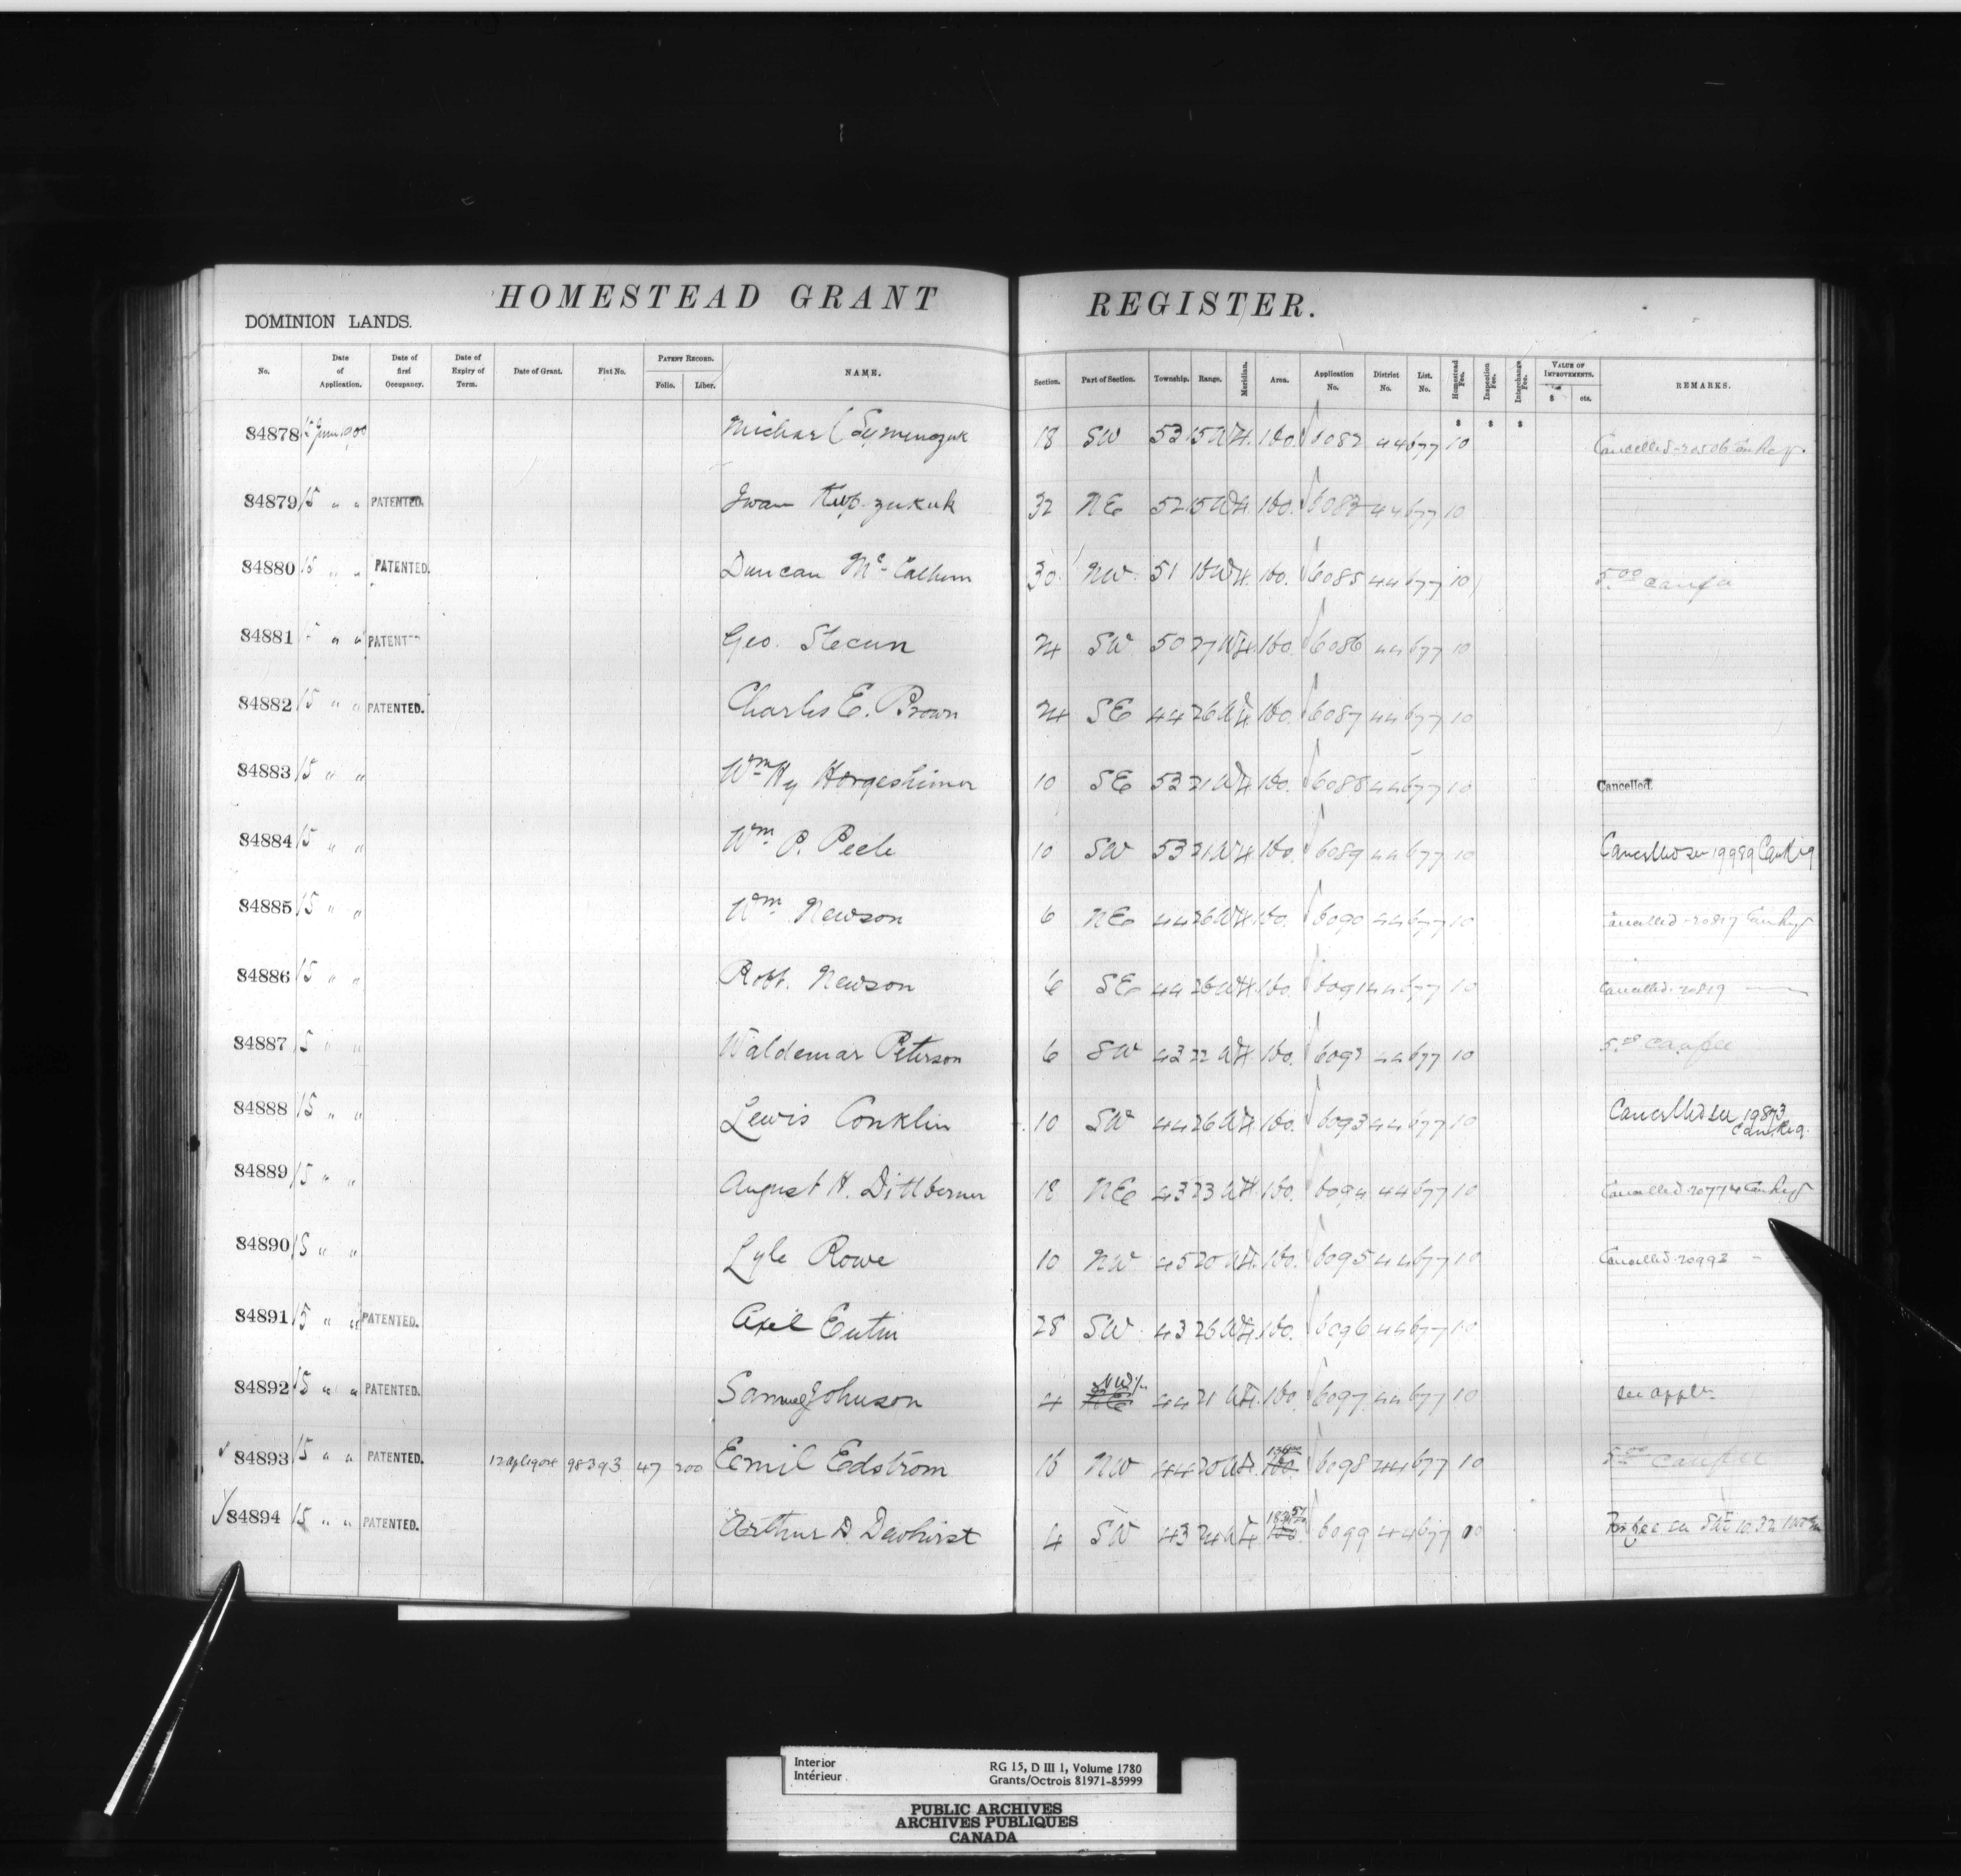 HOMESTEAD GRANT REGISTER.
DOMINION LANDS.
No. Date of Application. Date of first Occupancy. Date of Expiry of Term. Date of Grant. Fiat No. PATENT RECORD. Folio. Liber. NAME. Section. Part of Section. Township. Range. Meridian. Area. Application No. District No. List. No. Homestead Fee. Inspection Fee. Interchange Fee. VALUE OF IMPROVEMENTS. $ cts. REMARKS.
84878 18 SW 53 15 W4. 160. 6082 44 677 10 Cancelled - 20506 Can Reg.
84879 15 " " PATENTED. Iwan 32 NE 52 15 W4. 160. 6083 44 677 10
84880 15 " " PATENTED. Duncan Mc Calhum 30 NW 51 W4. 160. 6085 44 677 10 5.00 canfee
84881 " " PATENTED Geo. Stecun 24 SW 50 27 W4. 160. 6086 44 677 10
84882 15 " " PATENTED. Charles E. Brown 24 SE 44 26 W4 160. 6087 44 677 10
84883 15 " " Wm Hy 10 SE 53 21 W4. 160. 6088 44 677 10 Cancelled.
84884 15 " " Wm. P. Peele 10 SW 53 21 W4. 160. 6089 44 677 10 Cancelled see 19989 Can Reg
84885 15 " " Wm Newson 6 NE 44 26 W4. 160. 6090 44 677 10 Cancelled - 20817 Can Reg
84886 15 " " Robt. Newson 6 SE 44 26 W4. 160. 6091 44 677 10 Cancelled. 20819
84887 15 " " Waldemar Peterson 6 SW 43 22 W4. 160. 6092 44 677 10 5.00 canfee
84888 15 " " Lewis Conklin 10 SW 44 26 W4. 160. 6093 44 677 10 Cancelled see 19873
Can Reg.
84889 15 " " August H. Dittberner 18 NE 43 23 W4. 160. 6094 44 677 10 Cancelled. 20774 Can Reg
84890 15 " " Lyle Rowe 10 NW 45 20 W4. 160. 6095 44 677 10 Cancelled. 20993 -
84891 15 " " PATENTED. Axel 28 SW 43 26 W4. 160. 6096 44 677 10
84892 15 " " PATENTED. Samuel Johnson 4 NW 44 21 W4. 160. 6097 44 677 10 see appln
84893 15 " " PATENTED. 12 Apl 1904 98393 47 200 Emil Edstrom 16 NW 44 20 W4. 160. 6098 44 677 10 5.00 canfee
84894 15 " " PATENTED. Arthur D. Dewhirst 4 SW 43 24 W4 160. 6099 44 677 10
Interior
Intérieur
RG 15, D III 1, Volume 1780
Grants/Octrois 81971-85999
PUBLIC ARCHIVES
ARCHIVES PUBLIQUES
CANADA